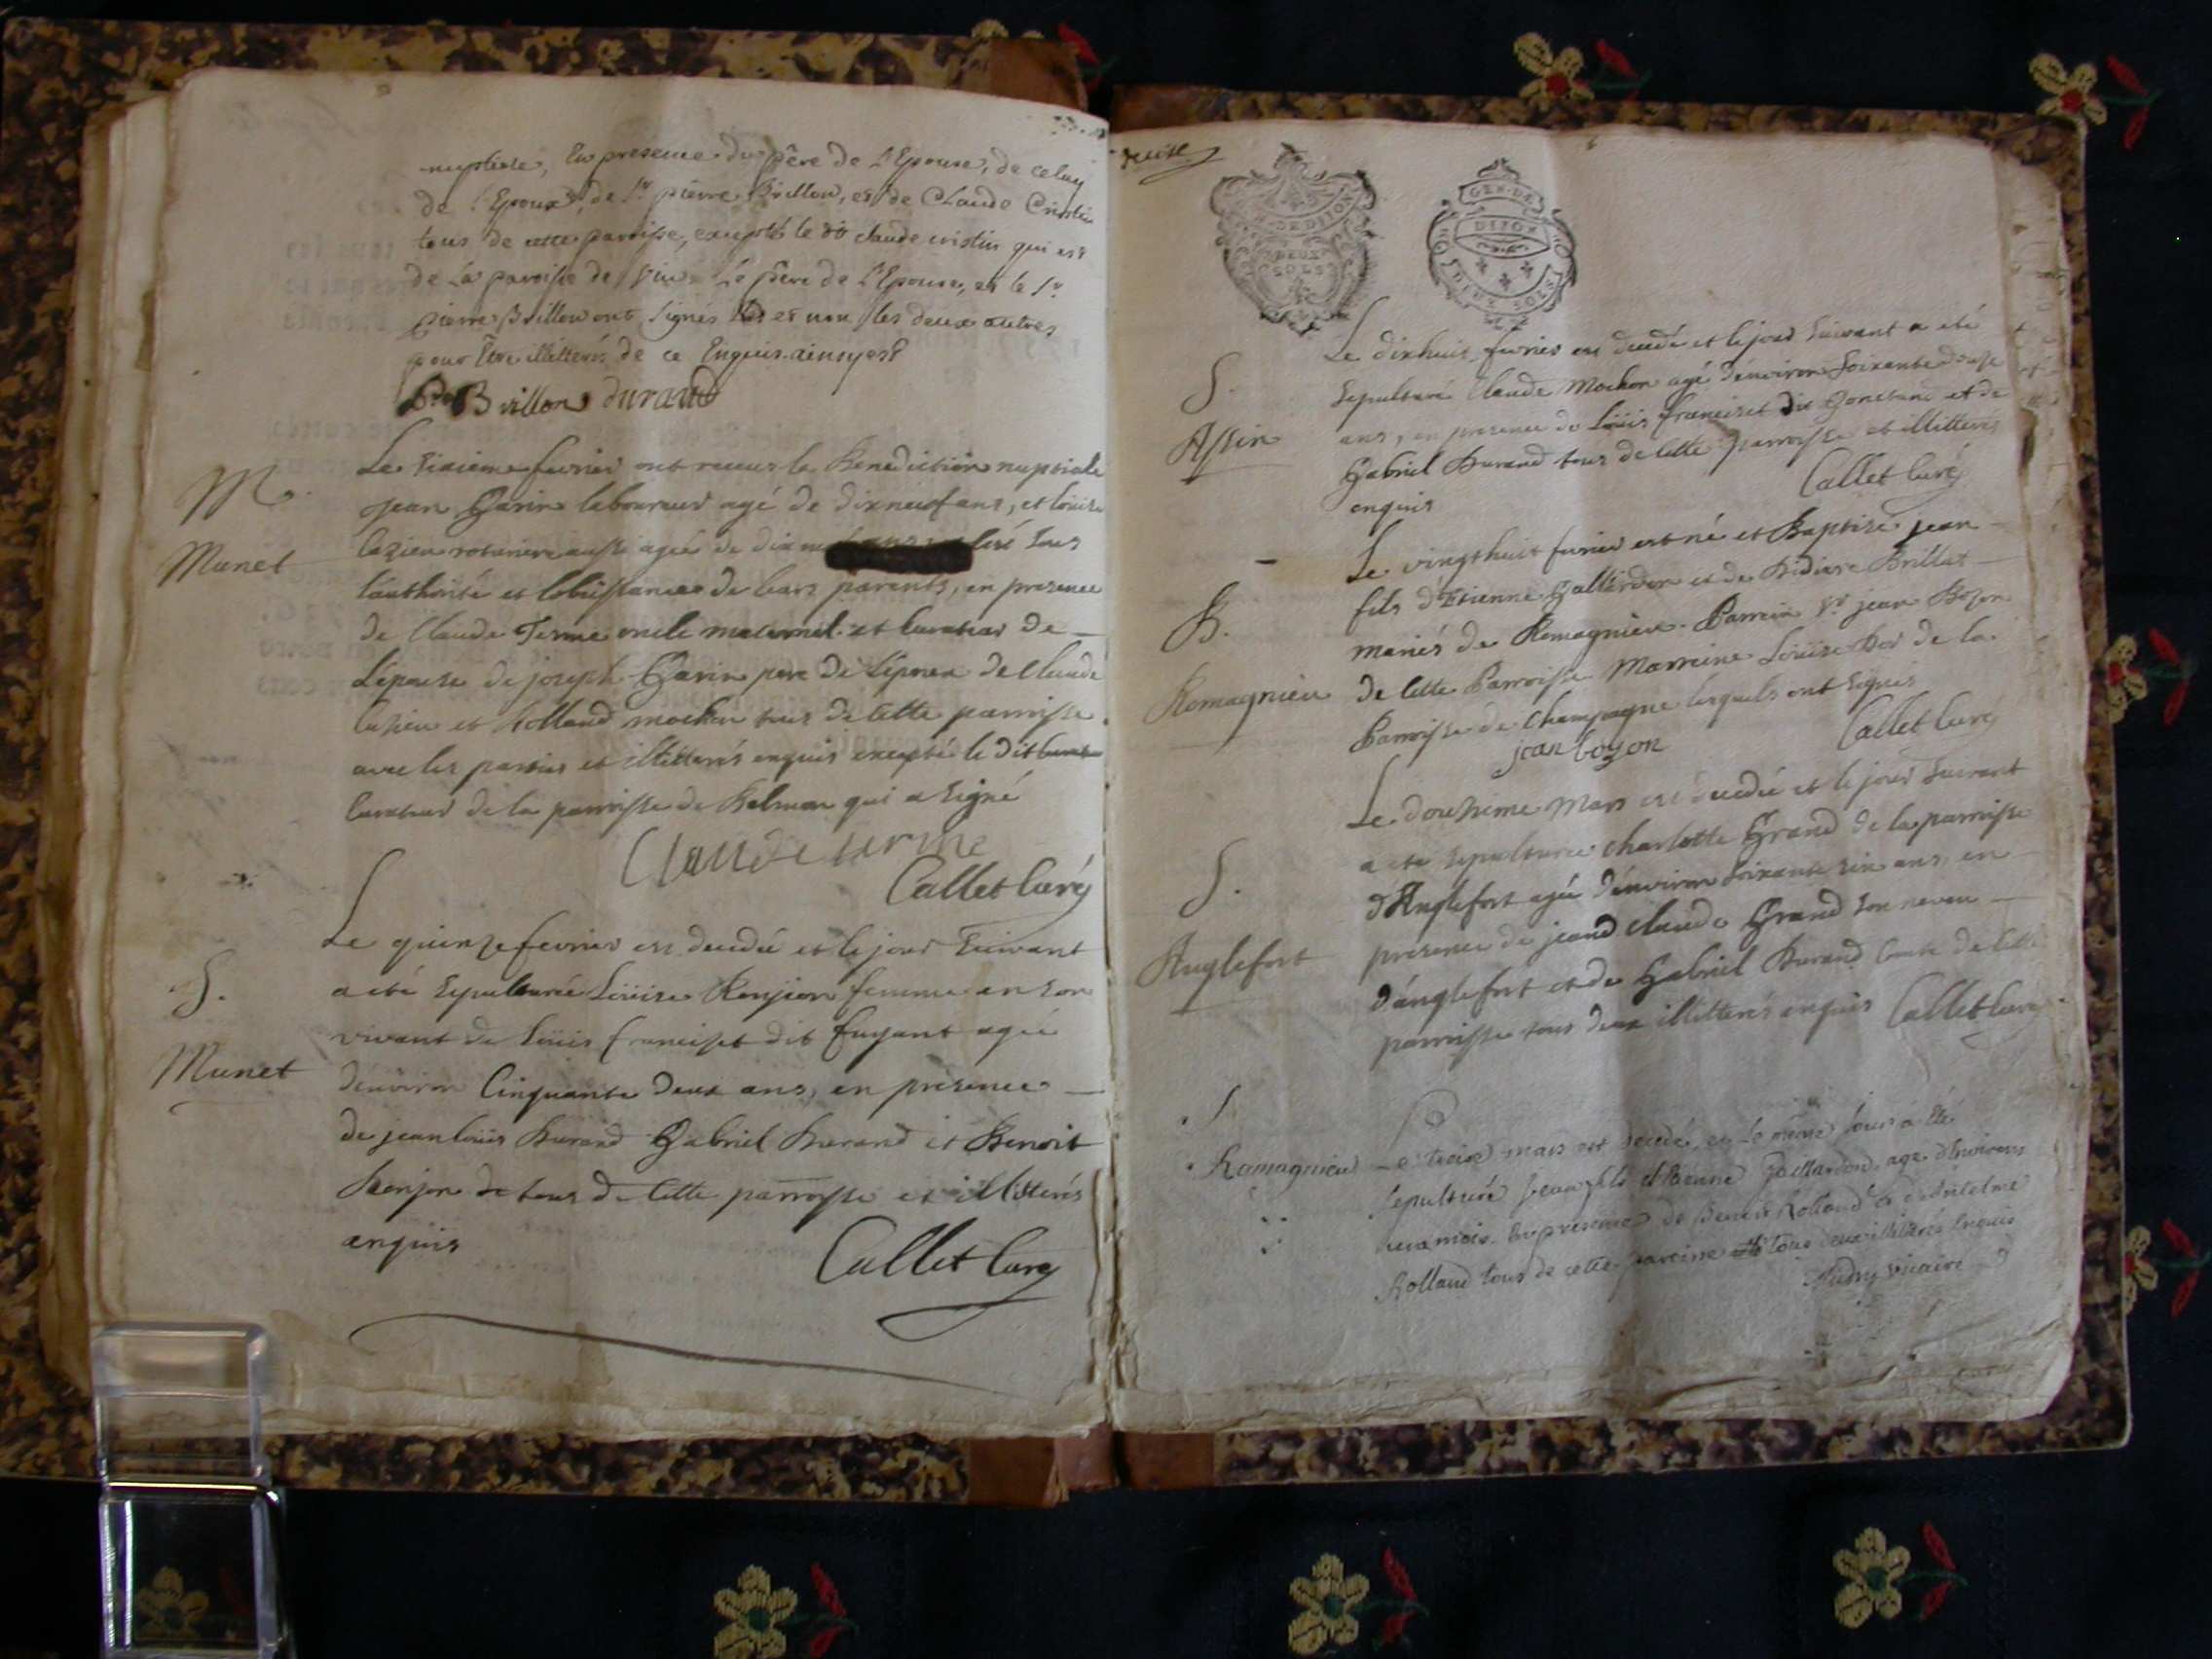 nuptiale, En presence du père de l'Epouse, de celuy
de l'Epoux, de Sr pierre Brillon, et de Claude Cristin
tous de cette paroisse, excepté le dt claude cristin qui est
de La paroisse de Le père de l'Epouse, et le Sr
pierre Brillon ont signés et non les deux autres
pour Etre illitterés de ce Enquis
Brillon durand
M.
Munet
Le Sixieme fevrier ont receus la Benediction nuptiale
jean Garin laboureur agé de dixneuf ans, et louise
aussi agée de dix sous
l'authorité et l'obeissance de leurs parents, en presence
de Claude Terme oncle maternel et Curateur de
L'epouse de joseph Garin pere de l'epoux de Claude
et Rolland mochon tous de cette parroisse
avec les parties et illitterés enquis excepté le dit
Curateur de la parroisse de Belmon qui a signé
Claude terme
Callet Curé
S.
Munet
Le quinze fevrier est decedée et le jour suivant
a été sepulturée Loüise Bonjon femme en son
vivant de Loüis franciset dit fuyant agée
d'environ Cinquante deux ans, en presence
de jean loüis Durand Gabriel Durand et Benoit
Bonjon tous de Cette parroisse et illitterés
enquis
Callet Curé
treize
GEN. DE
DIJON
DEUX SOLS
DE DIJON
DEUX
SOLS
S.
Assin
Le dixhuit fevrier est decedé et le jour suivant a été
sepulturé Claude Mochon agé d'environ soixante douze
ans, en presence de Loüis franciset dit et de
Gabriel Durand tous de Cette parroisse et illitterés
enquis
Callet Curé
B.
Romagnieu
Le vingthuit fevrier est né et Baptisé jean
fils d'Etienne Gallardon et de Brillat
mariés de Romagnieu. Parrein Sr jean Bozon
de Cette Parroisse Marreine Loüise de la
Parroisse de Champagne lesquels ont signés
jean bozon
Callet Curé
S.
Anglefort
Le douzieme Mars est decedée et le jour suivant
a eté sepulturée charlotte Grand de la parroisse
d'Anglefort agée d'environ soixante six ans, en
presence de jean claude Grand son neveu
d'anglefort et de Gabriel Durand de Cette
parroisse tous deux illitterés enquis Callet Curé
S
Romagnieu
Le treise mars est decedé, et le même jour a été
sepulturé jean fils d'Etienne Gaillardon, agé d'Environ
mois. En presence de Benoit Rolland et d'Antelme
Rolland tous de cette paroisse tous deux illiterés Enquis
vicaire